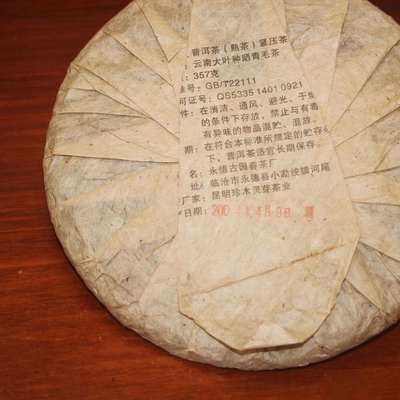 普洱茶（熟茶）紧压茶
：云南大叶种晒青毛茶
：357克
号：GB/T22111
可证号：QS5335 1401 0921
件：在清洁、通风、避光、干燥
的条件下存放，禁止与有毒
有异味的物品混贮、混放。
期：在符合本标准所规定的贮存
下，普洱茶适宜长期保存
名：永德古园春茶厂
址：临沧市永德县小勐统镇河尾
厂家：昆明珍木灵芽茶业
日期：